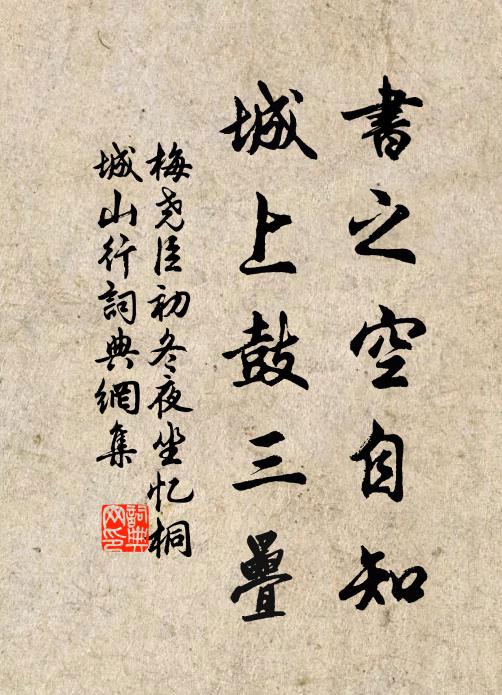 書之空自知
城上鼓三疊
梅尧臣初冬夜坐忆桐
城山行詞典網集